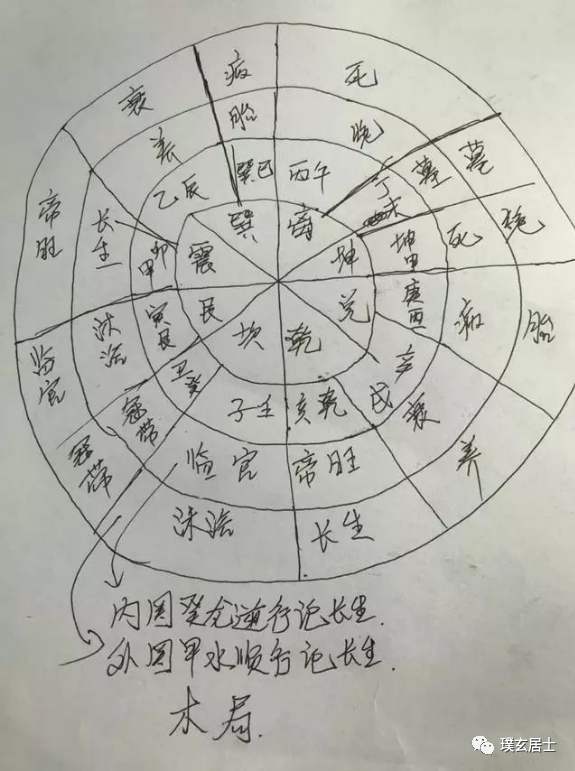 衰
病
死
墓
绝
胎
养
长生
沐浴
冠带
临官
帝旺
养
胎
绝
墓
死
病
衰
帝旺
临官
冠带
沐浴
长生
乙辰
巽巳
丙午
丁未
坤申
庚酉
辛戌
亥乾
子壬
丑癸
寅艮
卯甲
巽
离
坤
兑
乾
坎
艮
震
内圆癸龙逆行记长生.
外圆甲水顺行记长生.
木局.
璞玄居士